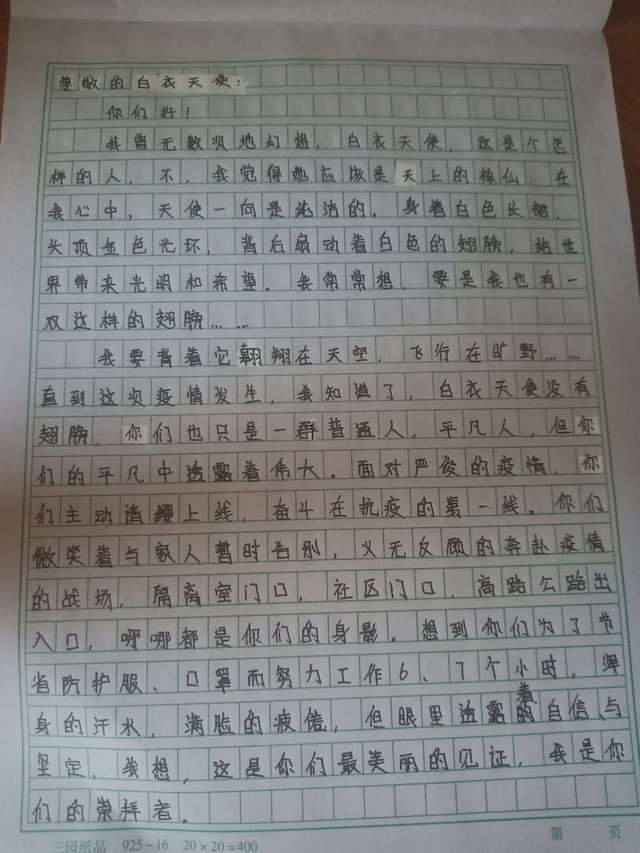 尊敬的白衣天使：
你们好！
我曾无数次地幻想，白衣天使，该是个怎
样的人，不，我觉得她应该是天上的神仙，在
我心中，天使一向是纯洁的，身着白色长裙，
头顶金色光环，背后扇动着白色的翅膀，给世
界带来光明和希望。我常常想，要是我也有一
双这样的翅膀……
我要背着它翱翔在天空，飞行在旷野……
直到这次疫情发生，我知道了，白衣天使没有
翅膀，你们也只是一群普通人，平凡人，但你
们的平凡中透露着伟大。面对严俊的疫情，你
们主动请缨上线，奋斗在抗疫的第一线。你们
微笑着与家人暂时告别，义无反顾的奔赴疫情
的战场，隔离室门口，社区门口，高路公路出
入口，哪哪都是你们的身影。想到你们为了节
省防护服、口罩而努力工作6、7个小时，浑
身的汗水，满脸的疲倦，但眼里透露着的自信与
坚定，我想，这是你们最美丽的见证，我是你
们的崇拜者。
三园纸品 925-16 20×20=400 第 页